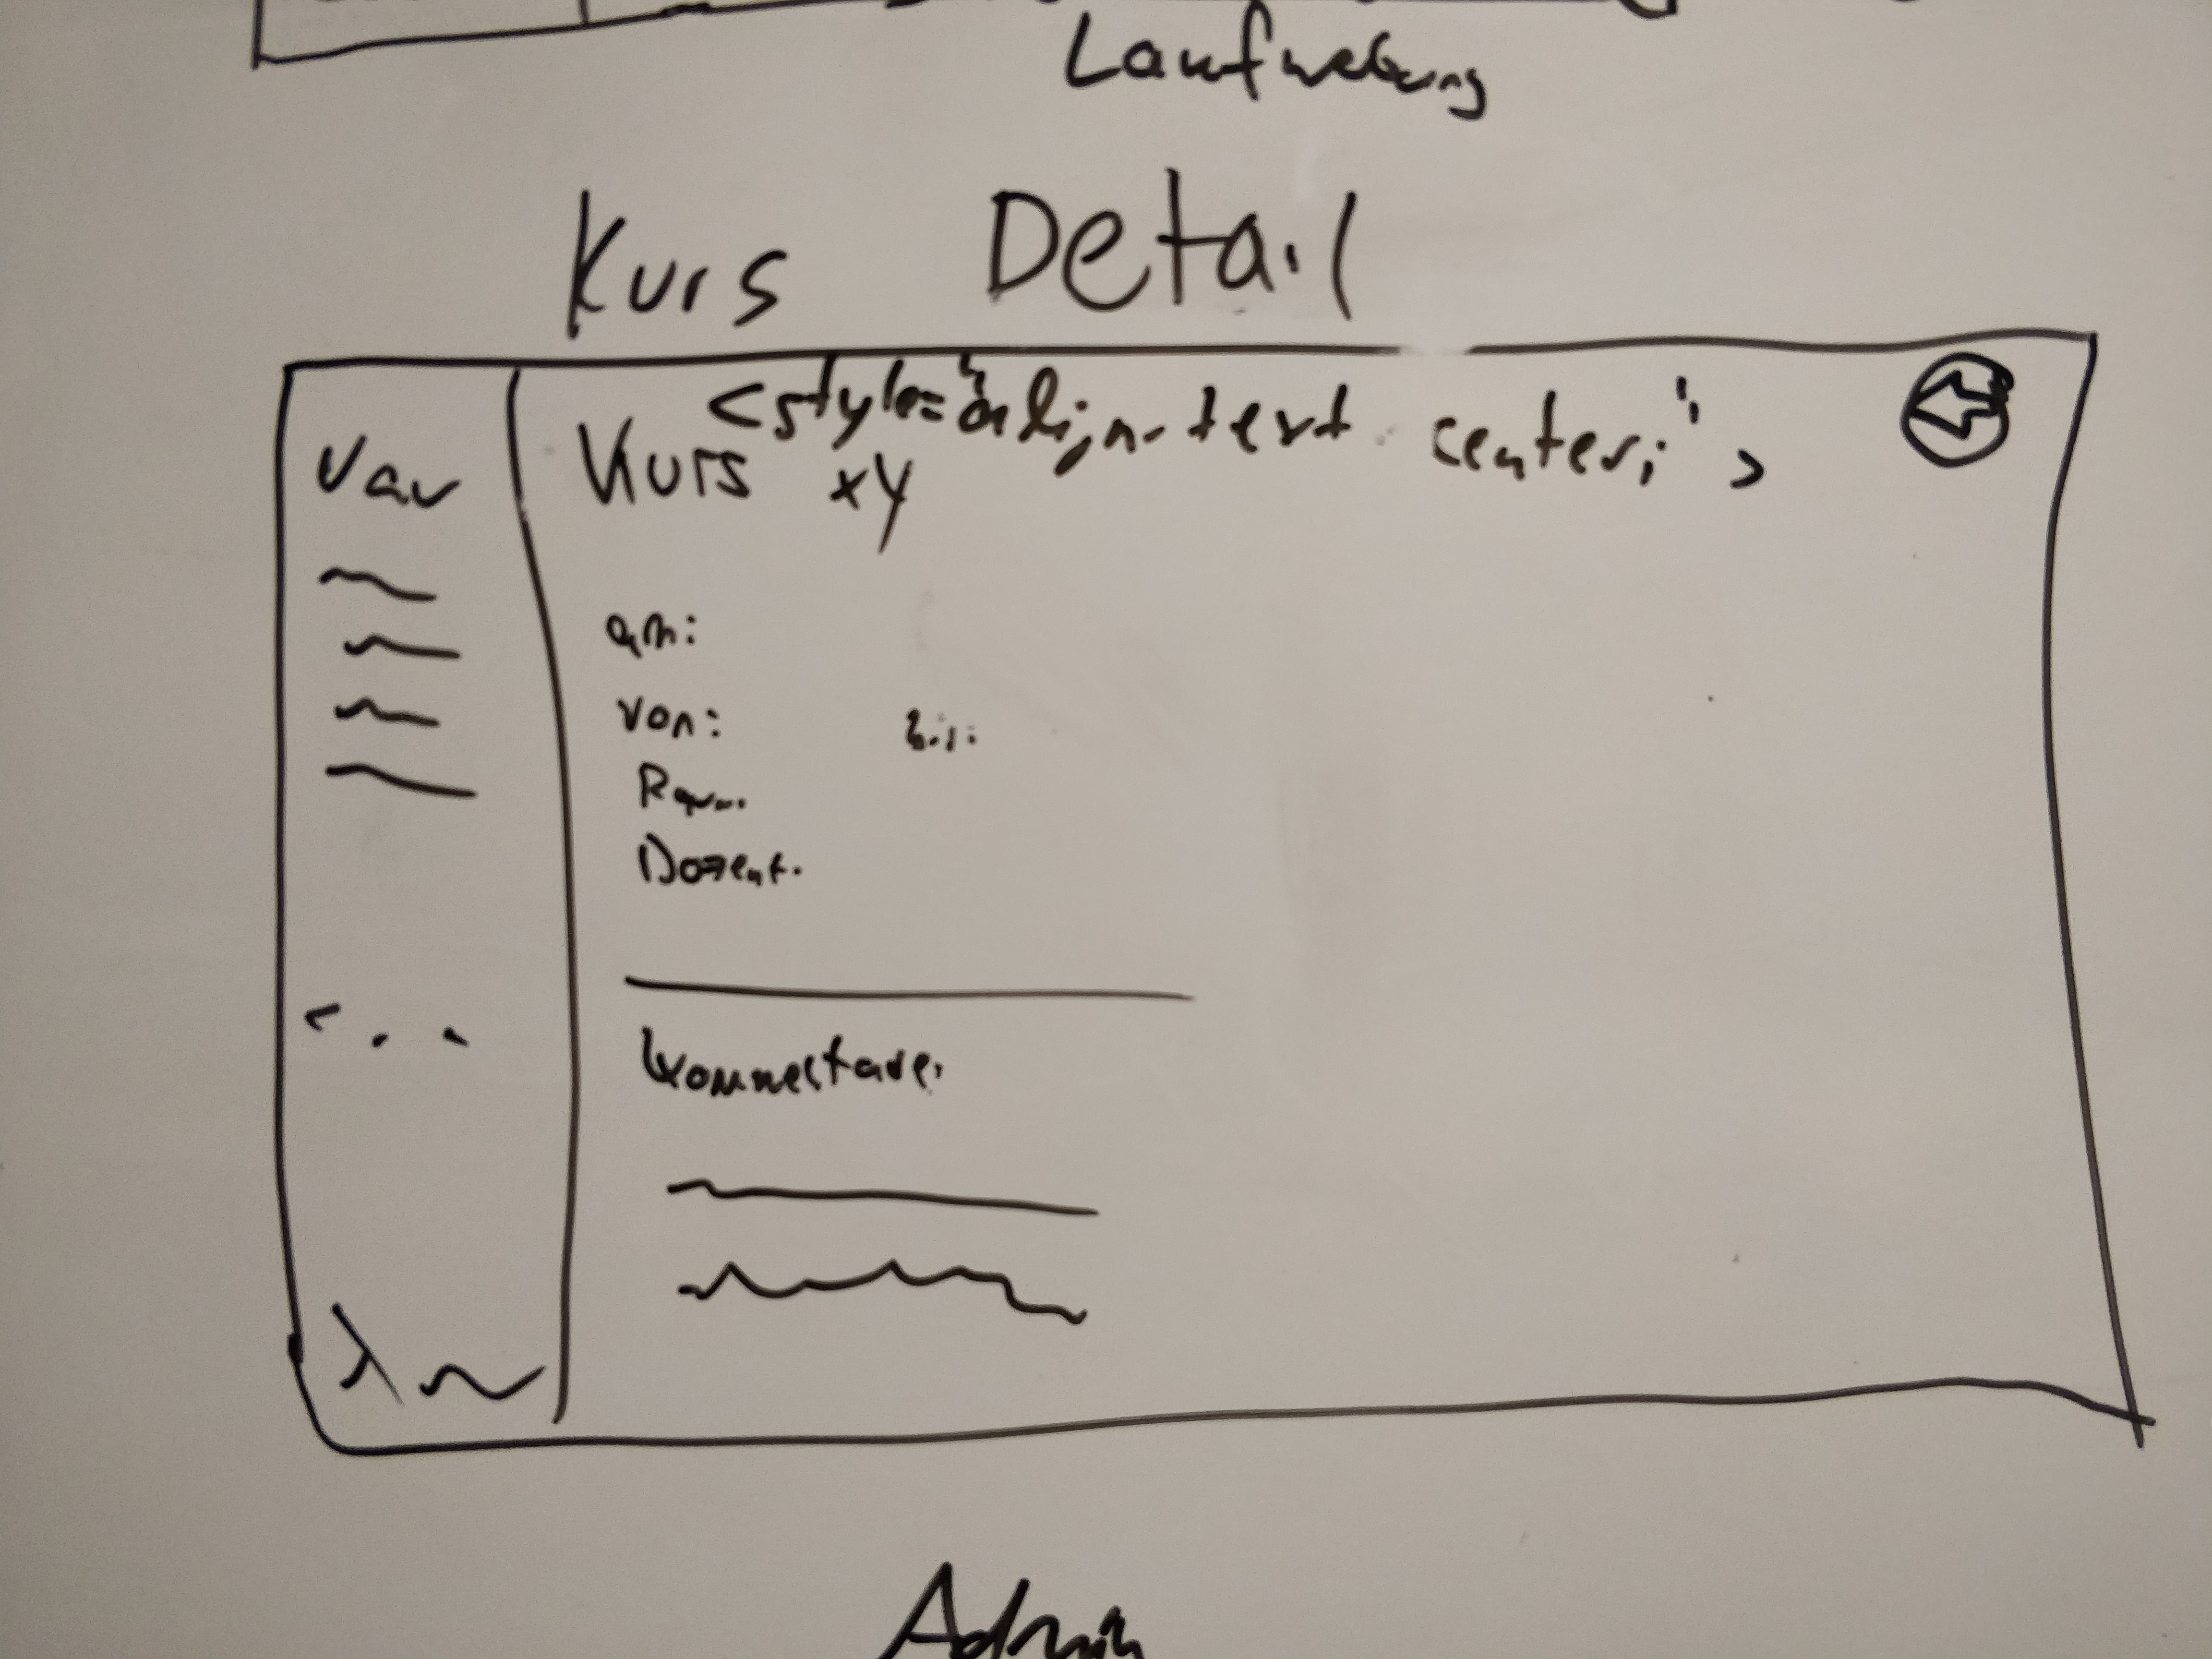 Laufwerbung
Kurs Detail
Nav
<style="align-text center;">
Kurs xy
am:
von: bis:
Raum:
Dozent:
Kommentare:
Admin